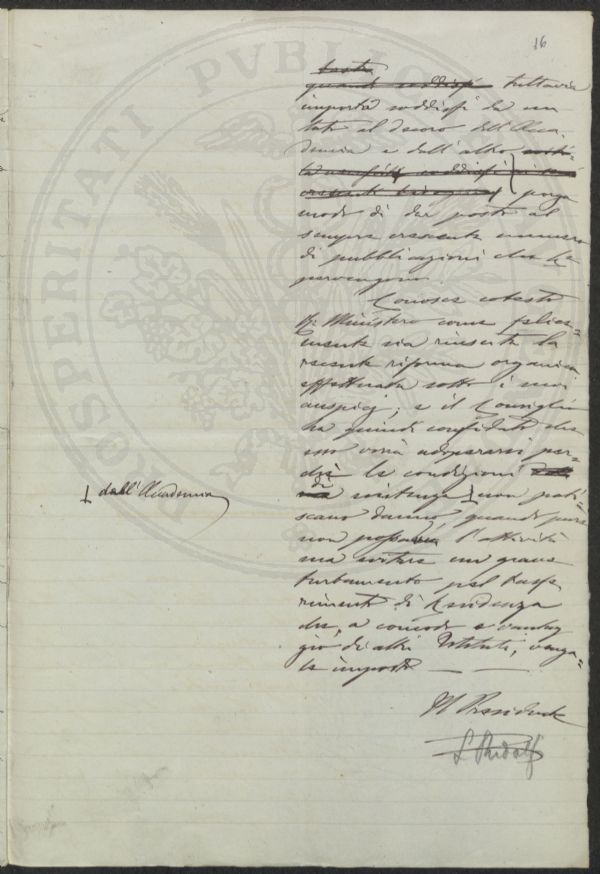 16
tuttavia
importa soddisfi da un
lato al decoro dell'Acca-
demia e dall'altro
porga
modo di dar posto al
sempre crescente numero
di pubblicazioni che le
pervengono.
Conosce cotesto
R. Ministero come felice-
mente sia riuscita la
recente riforma organica
effettuata sotto i suoi
auspicj, e il Consiglio
ha quindi confidato che
esso vorrà adoperarsi per-
chè le condizioni
di esistenza non pati-
scano danno, quando pure
non possa l'attività
sua evitare un grave
turbamento pel trasfe
rimento di Residenza
che, a comodo e vantag
gio di altri Istituti, venga-
le imposto
dall'Accademia
Il Presidente
L. Ridolfi
PROSPERITATI PVBLICAE